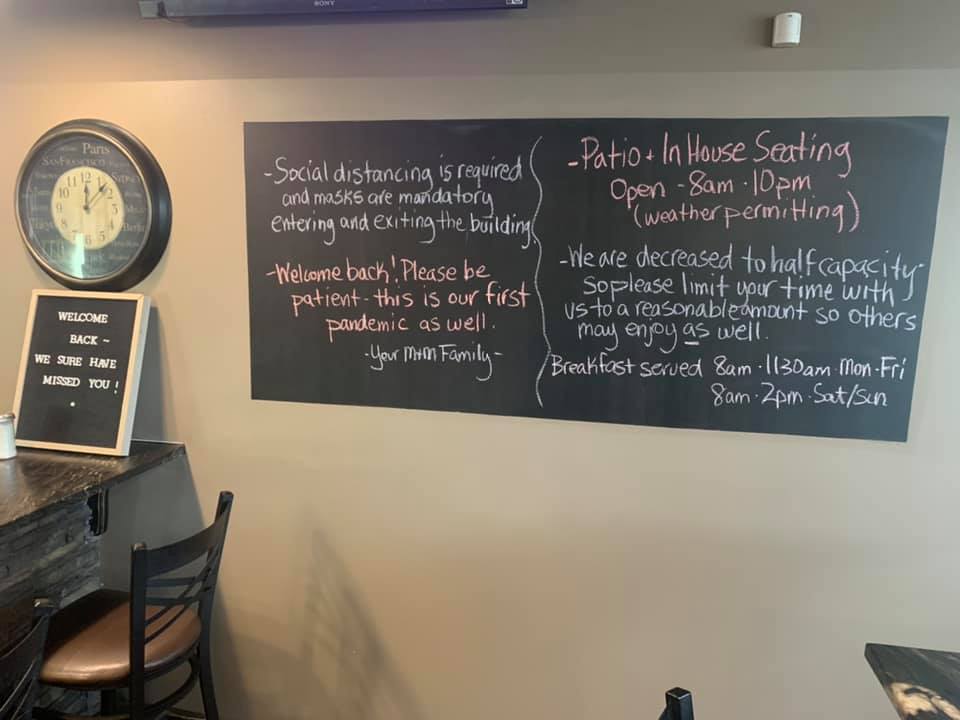 SONY
Paris
SAN FRANCISCO
SYDNEY
Berlin
WELCOME
BACK ~
WE SURE HAVE
MISSED YOU !
-Social distancing is required
and masks are mandatory
entering and exiting the building
-Welcome back! Please be
patient - this is our first
pandemic as well.
-Your M+M Family-
-Patio + In House Seating
Open - 8am - 10pm
(weather permitting)
-We are decreased to half capacity
so please limit your time with
us to a reasonable amount so others
may enjoy as well.
Breakfast served 8am - 1130am - Mon - Fri
8am - 2pm - Sat/Sun